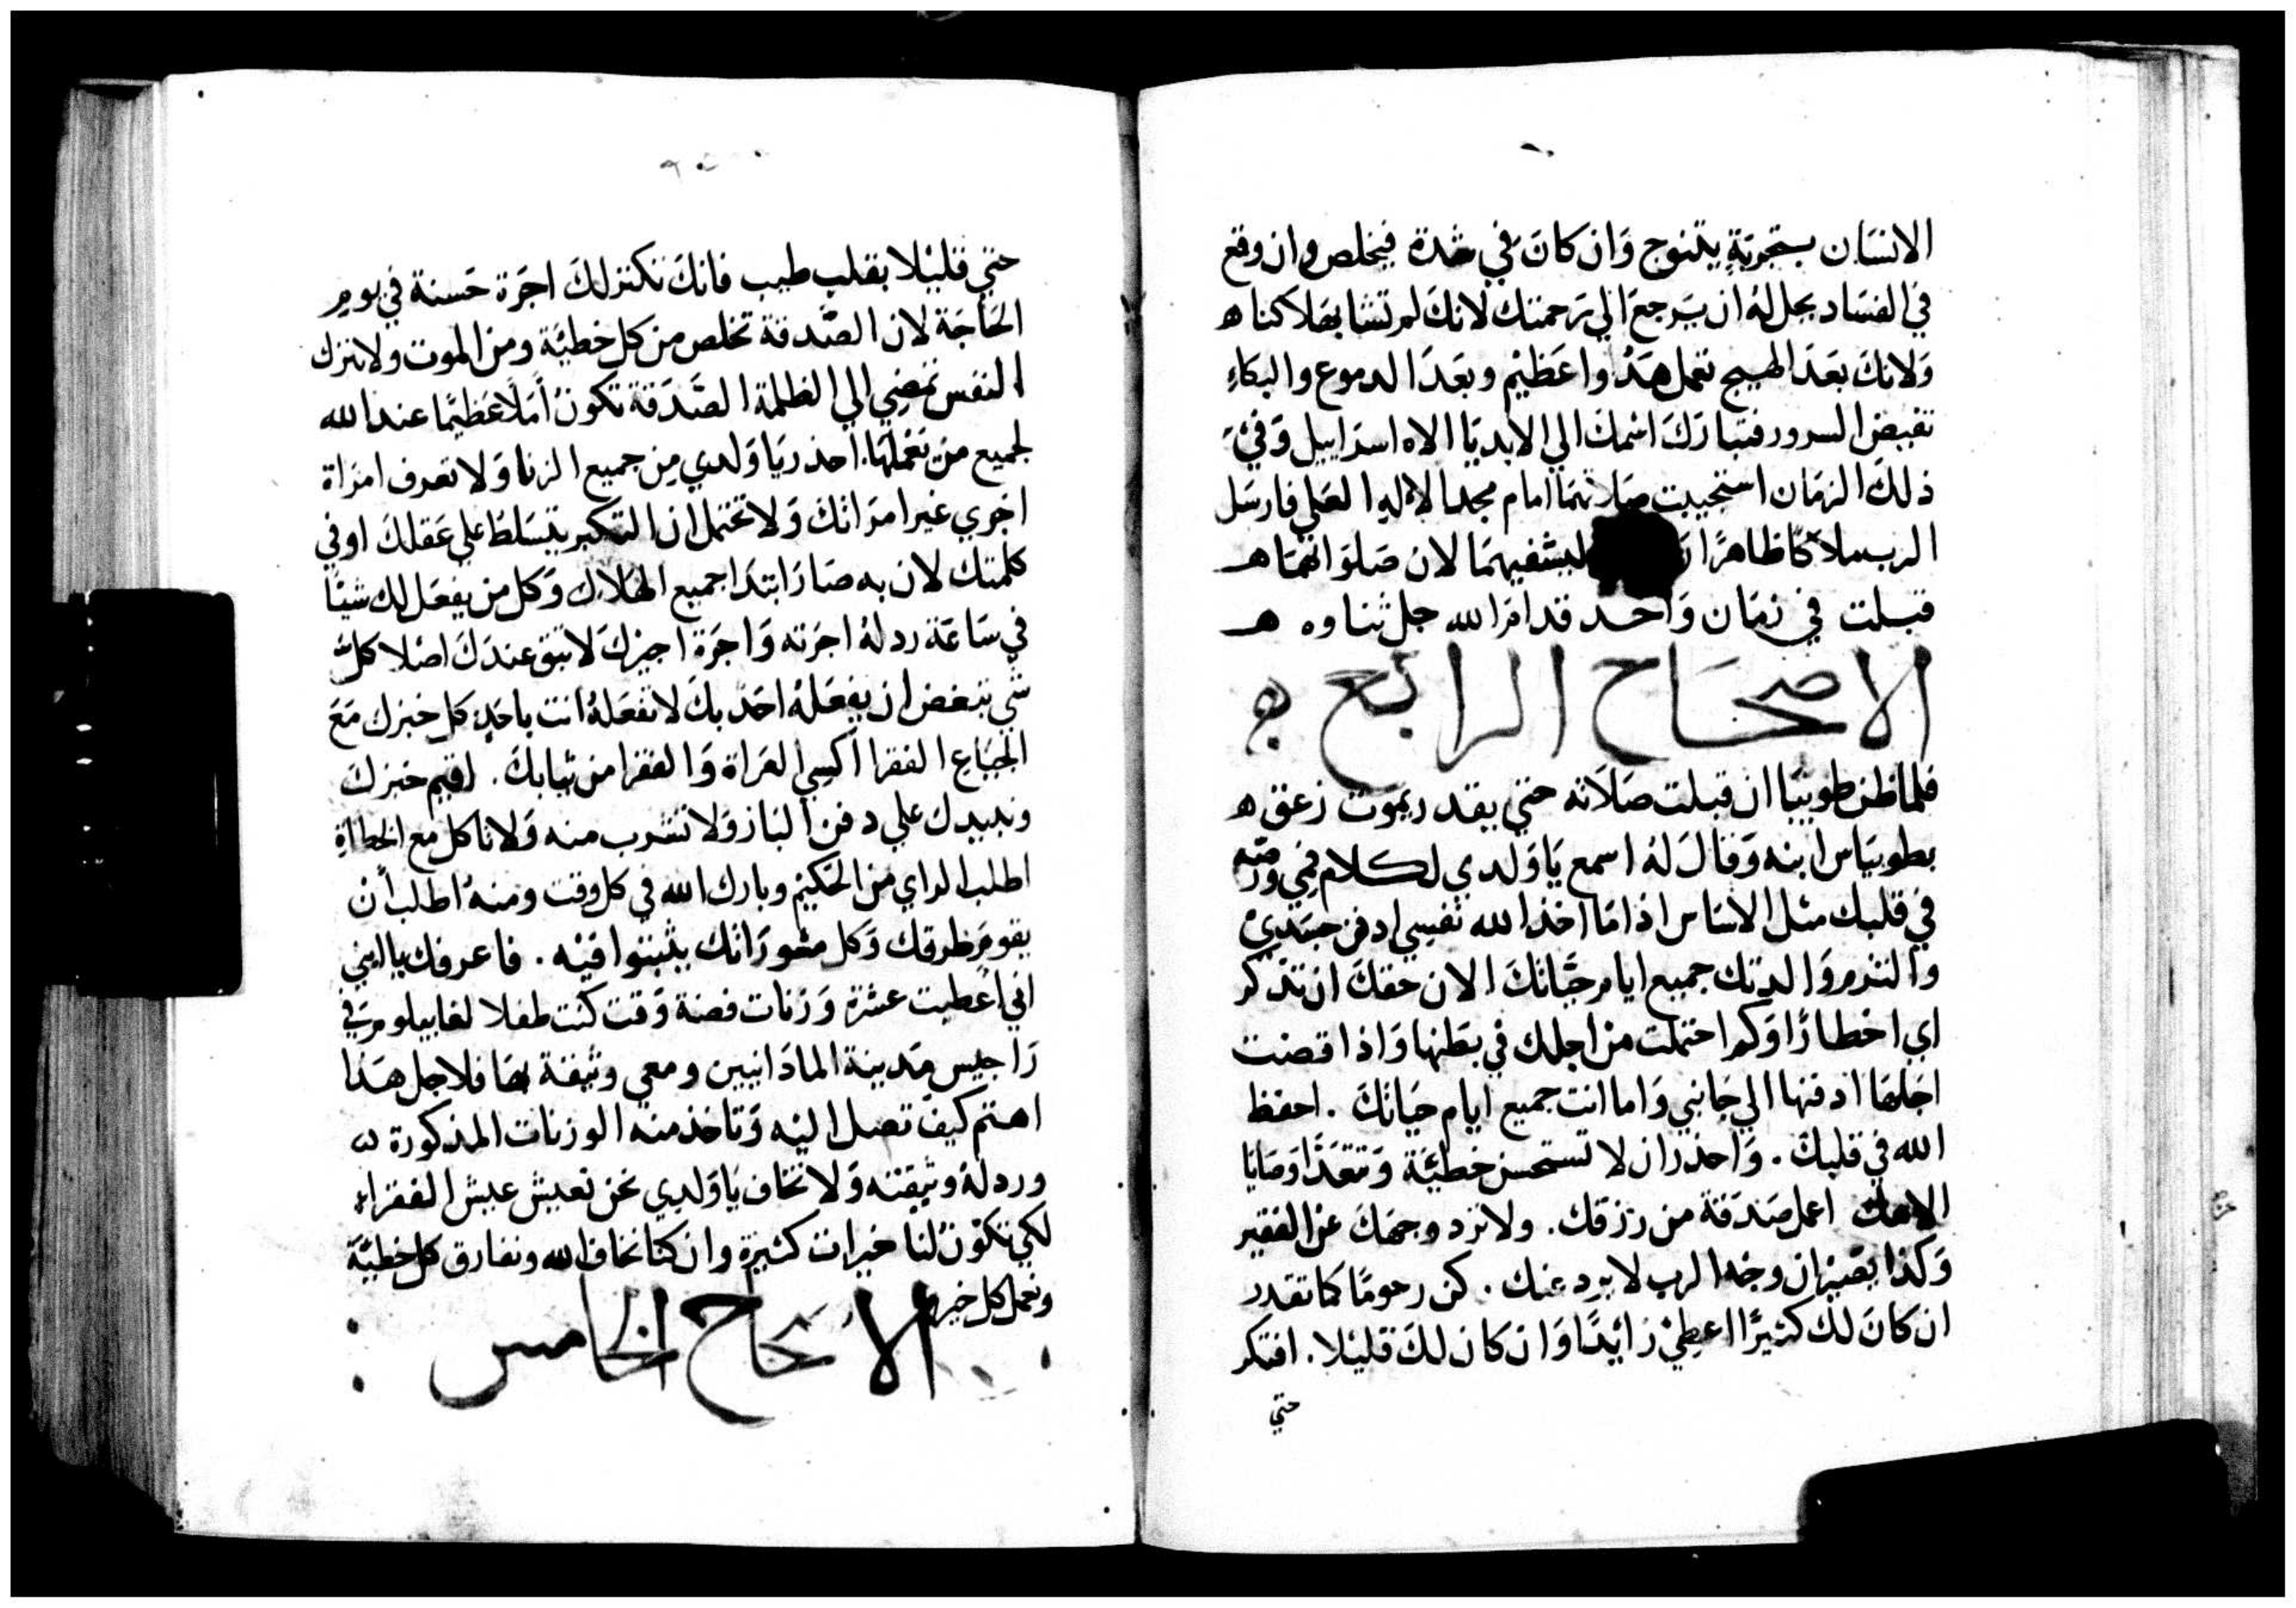 الانسَان بتجربَةٍ يتنوج وَان كانَ في شدة فيخلص وان وقع
في الفسَاد يحل لهُ ان يَرجعَ الي رَحمتك لانكَ لم تشا بهَلاكنا ه
وَلانكَ بعَدَ الهيج تعمل هَدُوا عَظيْم وبعَدَ الدموع والبكاءِ
تفيض السرور فتبارَكَ اسْمكَ الي الابد يَا الاه اسراييل وَفيْ
ذلكَ الزمَان استجيبت صَلاتهمَا امام مجد الاله العَلي فارسَل
الرب ملاكًا ظاهرًا ليشفيهمَا لان صَلوَاتهمَا هـ
قبلت في زمَان وَاحد قدام الله جل ثناوه هـ
الاصحَاح الرابع ه
فلما ظن طوبيَا ان قبلت صَلَاته حتي يقدر يموت زعق ه
بطوبيَاس ابنه وَقالَ لهُ اسمع يَا وَلدي لكلام فمي وصنه
في قلبك مثل الاسَاس اذا مَا اخذ الله نفسي ادفن جسَدي
والتزم وَالدتك جميع ايام حيَاتكَ الان حقكَ ان تذكر
اي اخطارًا وَكم احتملت من اجلك في بطنها وَاذا قضت
اجَلهَا ادفنها الي جَانبي وَاما انت جميع ايام حيَاتكَ . احفظ
الله في قلبكَ . وَاحذر ان لا تستحسن خطيَّة وَتتعَدَّا وَصَايَا
الاهك اعمل صَدَقة من رزقك . ولا ترد وجهَكَ عن الفقير
وَكذا يصَير ان وجْه الرب لا يرد عنك . كن رحومًا كما تقدر
ان كانَ لك كثيرًا اعطيْ زائِدًا وَان كان لكَ قليْلا . افتكر
حتي
حتي قليْلا بقلب طيب فانكَ تكنز لكَ اجَرة حَسنة في يومِ
الحَاجَة لان الصَّدقة تخلص من كل خطيَّة ومن الموت ولا تترك
النفس تمضِي الي الظلمة الصَّدَقة تكونُ أملاً عَظيمًا عند الله
لجميع من يَعْملهَا . احذر يَا وَلدي مِن جميع الزنا وَلا تعرف امرَاة
اخري غير امرَاتكَ وَلا تحتمل ان التكبر يتسَلط علي عَقلكَ او في
كلمتك لان به صَارَ ابتدَا جميع الهَلاك وَكل من يفعَل لك شيًا
في سَاعَة رد لهُ اجرَته وَاجرَة اجيركَ لا تبق عندَكَ اصْلا كلَّ
شي تبغض ان يفعَلهُ احَد بكَ لا تفعَلهُ انت باحَدٍ كل خبزك مَعَ
الجيَاعِ الفقرا اكسِي العرَاة وَالفقرا من ثيابكَ . اقيم خبزكَ
ونبيدك علي دفن البَار وَلا تشرب منه وَلا تاكل مع الخطاةِ
اطلب الراي من الحَكيْم وبارك الله في كل وقت ومنهُ اطلب أن
يقومَ طرقك وَكل مشورَاتك يثبتوا فيْه . فاعرفك يا ابني
اني اعطيت عشرَة وَزنات فضة وَقت كنت طفلا لغابيلوس في
رَاجيس مَدينة المادَانيين ومعي وثيقة بهَا فلاجل هَذا
اهتم كيفَ تصل اليْه وَتاخذ منه الوزنات المذكورة
ورد لهُ وثيقته وَلا تخاف يَا وَلدي نحن نعيش عيش الفقراءِ
لكي تكوْن لنا خيرات كثيرَة وان كنا نخاف الله ونفارق كل خطيَّة
ونعمل كل خير
الاصحاح الخامس